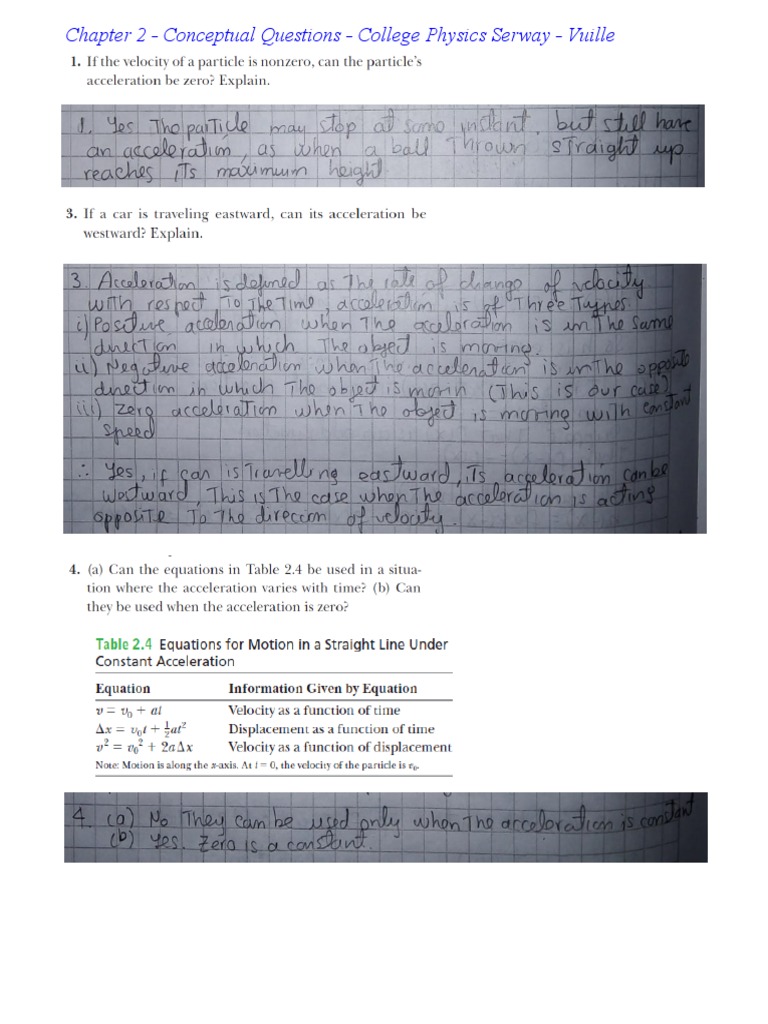 Chapter 2 - Conceptual Questions - College Physics Serway - Vuille
1. If the velocity of a particle is nonzero, can the particle's
acceleration be zero? Explain.
1. Yes The particle may stop at some instant, but still have
an acceleration, as when a ball Thrown straight up
reaches iTs maximum height
3. If a car is traveling eastward, can its acceleration be
westward? Explain.
3. Acceleration is defined as The rate of change of velocity
with respect To The Time, acceleration is of Three Typnes:
i) Positive acceleration when The acceleration is in The same
direction in which The object is moving.
ii) Negative acceleration when The acceleration is in The opposite
direction in which The object is movin (This is our case)
iii) Zero acceleration when The object is moving with constant
speed
∴ Yes, if can is Travelling eastward, iTs acceleration can be
Westward, This is The case when The acceleration is acting
opposite To The direction of velocity.
-
4. (a) Can the equations in Table 2.4 be used in a situa-
tion where the acceleration varies with time? (b) Can
they be used when the acceleration is zero?
Table 2.4 Equations for Motion in a Straight Line Under
Constant Acceleration
Equation Information Given by Equation
v = v₀ + at Velocity as a function of time
Δx = v₀t + ½at² Displacement as a function of time
v² = v₀² + 2aΔx Velocity as a function of displacement
Note: Motion is along the x-axis. At t = 0, the velocity of the particle is v₀.
4 (a) No They can be used only when The acceleration is constant
(b) Yes. Zero is a constant.